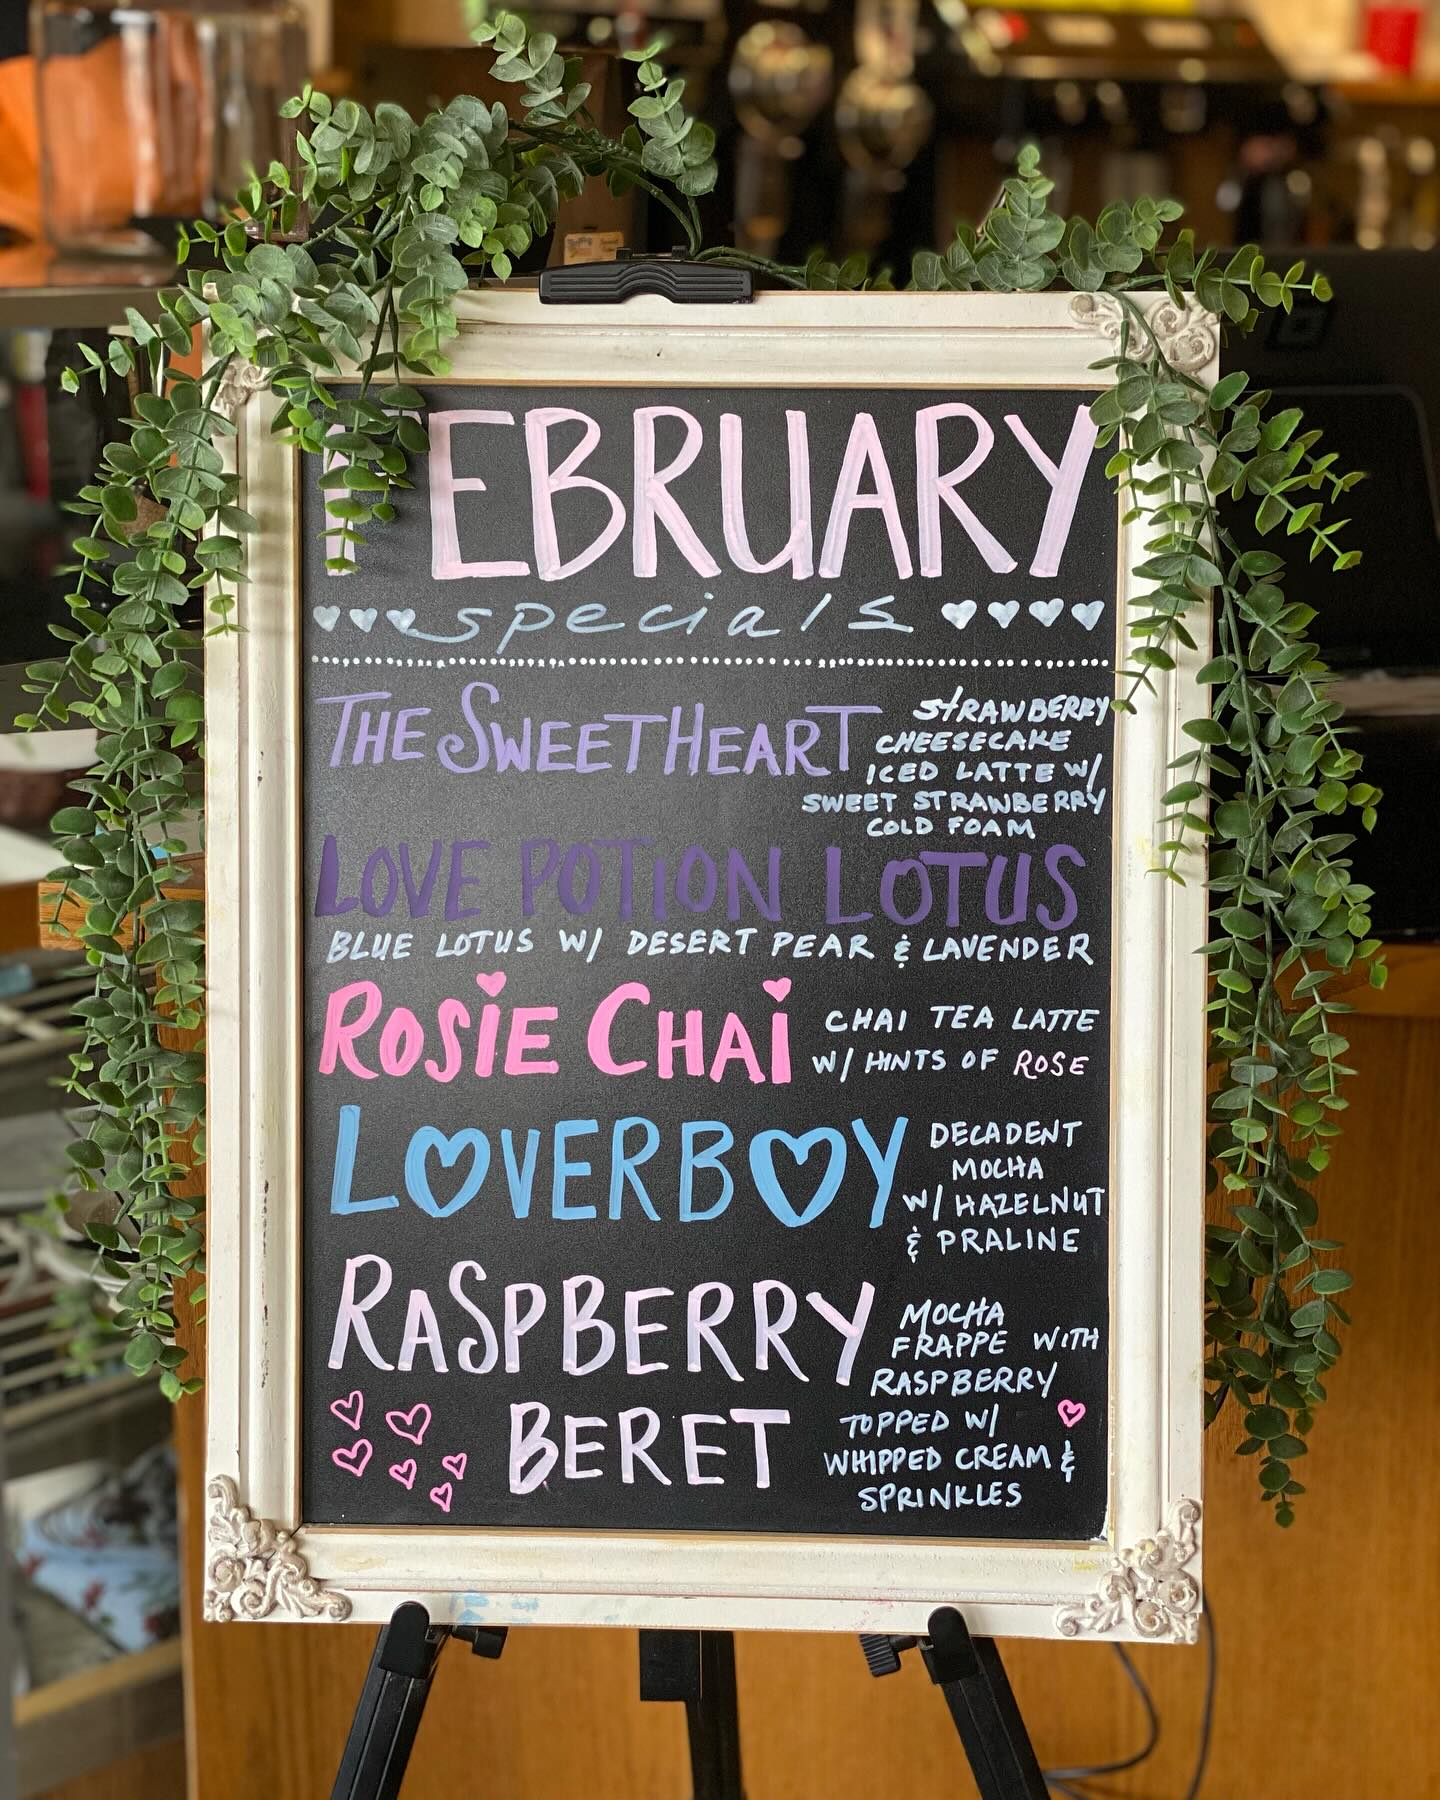 FEBRUARY
specials
THE SWEETHEART
STRAWBERRY
CHEESECAKE
ICED LATTE W/
SWEET STRAWBERRY
COLD FOAM
LOVE POTION LOTUS
BLUE LOTUS W/ DESERT PEAR & LAVENDER
ROSIE CHAI
CHAI TEA LATTE
W/ HINTS OF ROSE
LOVERBOY
DECADENT
MOCHA
W/ HAZELNUT
& PRALINE
RASPBERRY
BERET
MOCHA
FRAPPE WITH
RASPBERRY
TOPPED W/
WHIPPED CREAM &
SPRINKLES